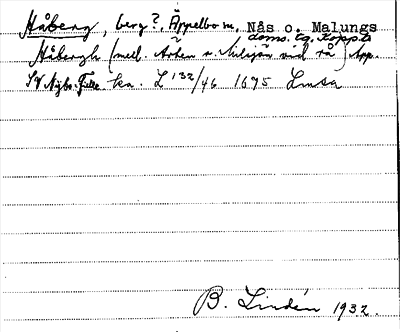 Håberg, berg?, Äppelbo sn, Nås o. Malungs
doms. lg, Kopp.b
Håbergh (mell. Arken o. Nilsjön vid rå) App.
SV Nybo-Fälle ka. L 132/46 1695 Lmsa
B. Lindén 1932.